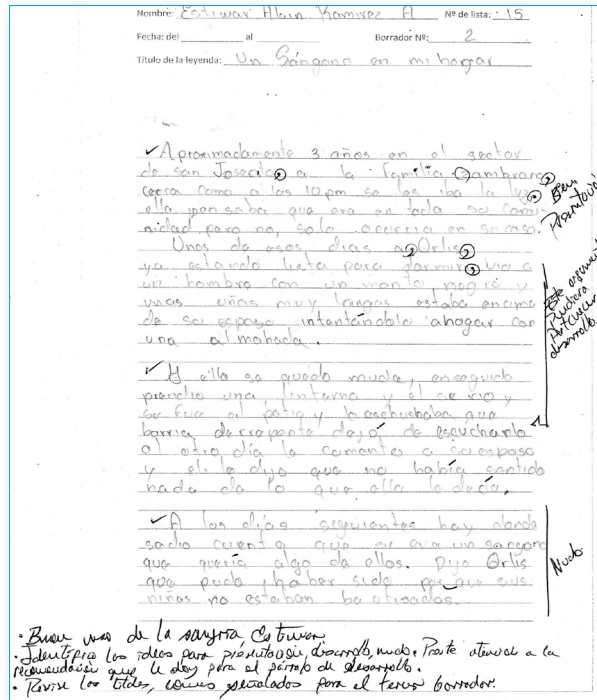 Nombre: Estiwar Alain Ramirez A Nº de lista: 15
Fecha: del al Borrador Nº: 2
Título de la leyenda: Un Sángano en mi hogar
✓Aproximadamente 3 años en el sector
de san Josecito, a la familia Zambrano,
cerca como a las 10pm se les iba la luz,
ella pensaba que era en toda su comu-
nidad, pero no, solo ocurria en su casa.
Bien Presentación
Unos de esos dias a Orlis,
ya estando lista para dormir, vio a
un hombre con un manto negro y
unas uñas muy largas estaba encima
de su esposo intentándolo ahogar con
una almohada.
Este
Pudiera
desarrollo.
✓Y ella se quedo muda, enseguida
prendio una linterna y el se rio y
se fue al patio y lo eschuchaba que
barria, derrepente dejó de escucharlo
al otro día le comento a su esposo
y el le dijo que no había sentido
nada de lo que ella le decía.
✓A los días siguientes hay donde
se dio cuenta que se era un sangano
que quería algo de ellos. Dijo Orlis
que pudo haber sido por que sus
niñas no estaban bautisadas.
Nudo
• Buen uso de la sangría Estiwar.
• Identifica las ideas para presentación, desarrollo, nudo. Preste atención a la
recomendación que le doy para el párrafo de desarrollo.
• Revise las tildes, comas señalados para el tercer borrador.